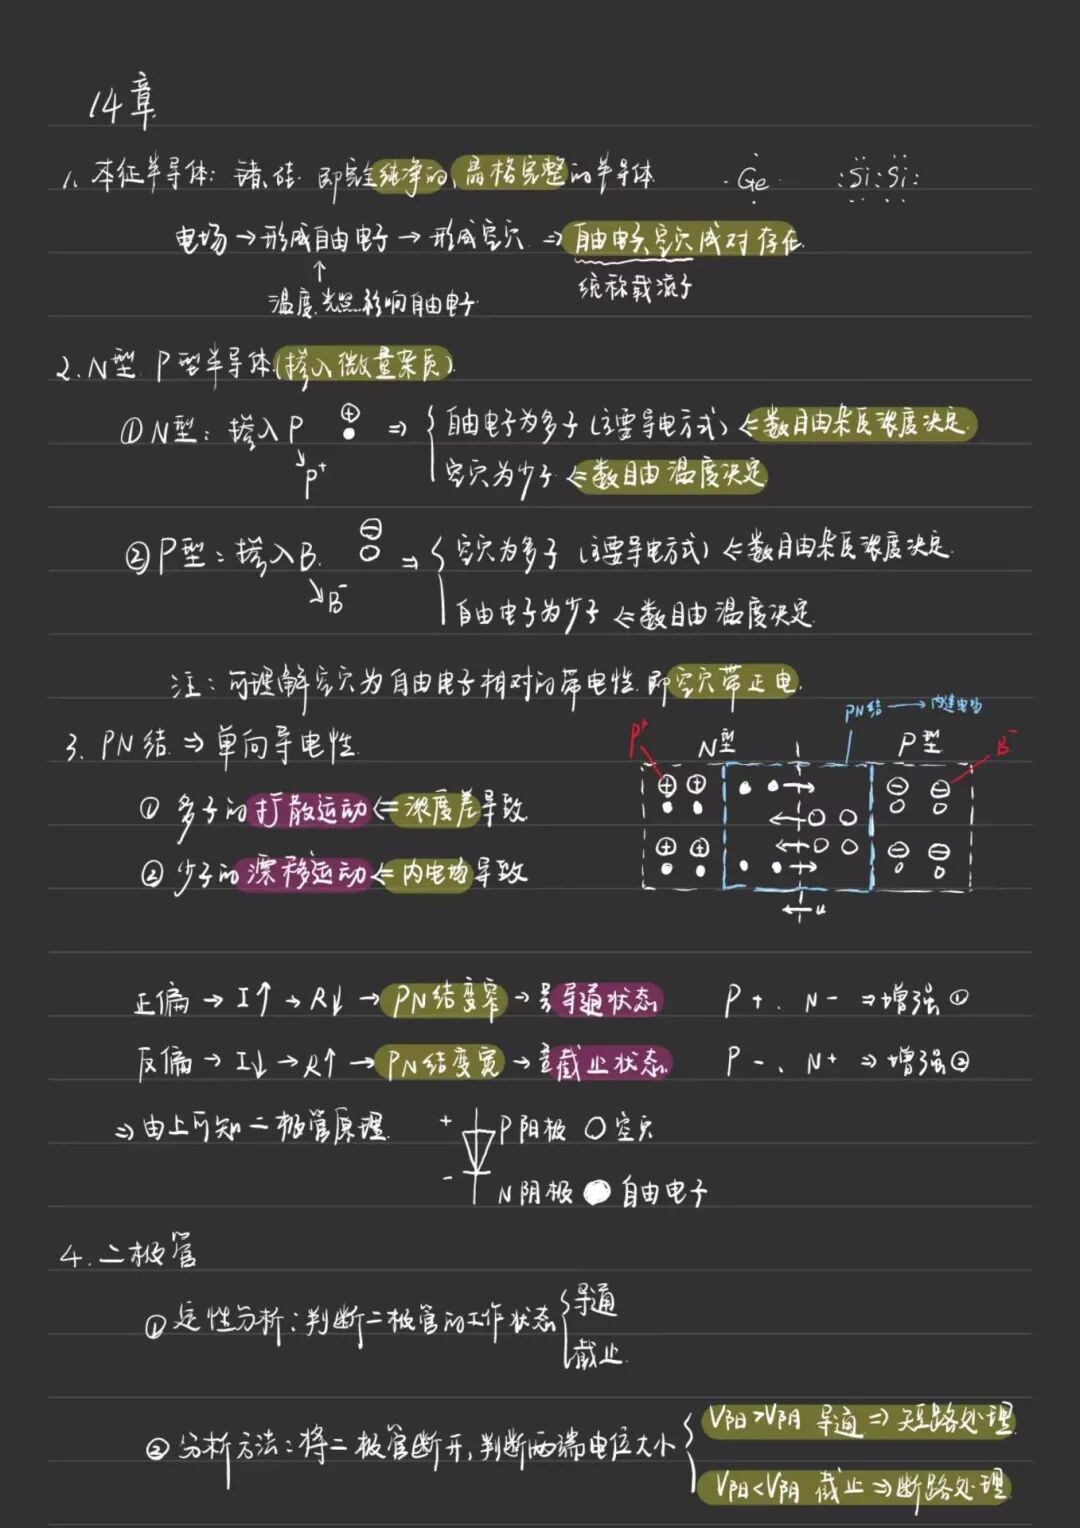 14章
1. 本征半导体: 锗、硅. 即完全纯净的、晶格完整的半导体 ·Ge· :Si:Si:
电场→形成自由电子→形成空穴 ⇒ 自由电子、空穴成对存在.
↑
温度、光照影响自由电子. 统称载流子
2. N型. P型半导体(掺入微量杂质)
①N型: 掺入P ⊕ ⇒ { 自由电子为多子(主要导电方式) ⇐数目由杂质浓度决定.
↘P⁺ 空穴为少子 ⇐数目由温度决定.
②P型: 掺入B. ⊖ ⇒ { 空穴为多子(主要导电方式) ⇐数目由杂质浓度决定.
↘B⁻ 自由电子为少子 ⇐数目由温度决定.
注: 可理解空穴为自由电子相对的带电性. 即空穴带正电.
3. PN结 ⇒ 单向导电性.
P⁺ N型 PN结→内建电场 P型 B⁻
①多子的扩散运动⇐浓度差导致.
②少子的漂移运动⇐内电场导致
←u
正偏→I↑→R↓→PN结变窄→导通状态 P+、N- ⇒增强①
反偏→I↓→R↑→PN结变宽→截止状态. P-、N+ ⇒增强②
⇒由上可知二极管原理. + P阳极 ○空穴
- N阴极 ●自由电子
4. 二极管
①定性分析: 判断二极管的工作状态{导通
截止.
②分析方法: 将二极管断开, 判断两端电位大小{V阳>V阴 导通 ⇒ 短路处理
V阳<V阴 截止⇒断路处理.